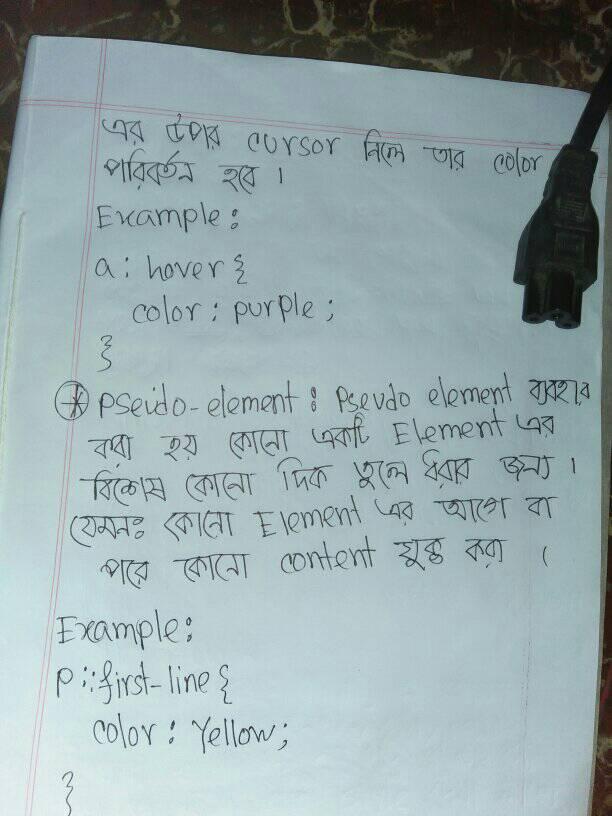 এর উপর cursor নিলে তার color
পরিবর্তন হবে ।
Example:
a: hover {
color: purple;
}
* pseudo-element: Pseudo element ব্যবহার
করা হয় কোনো একটি Element এর
বিশেষ কোনো দিক তুলে ধরার জন্য ।
যেমনঃ কোনো Element এর আগে বা
পরে কোনো content যুক্ত করা ।
Example:
p::first-line {
color: Yellow;
}